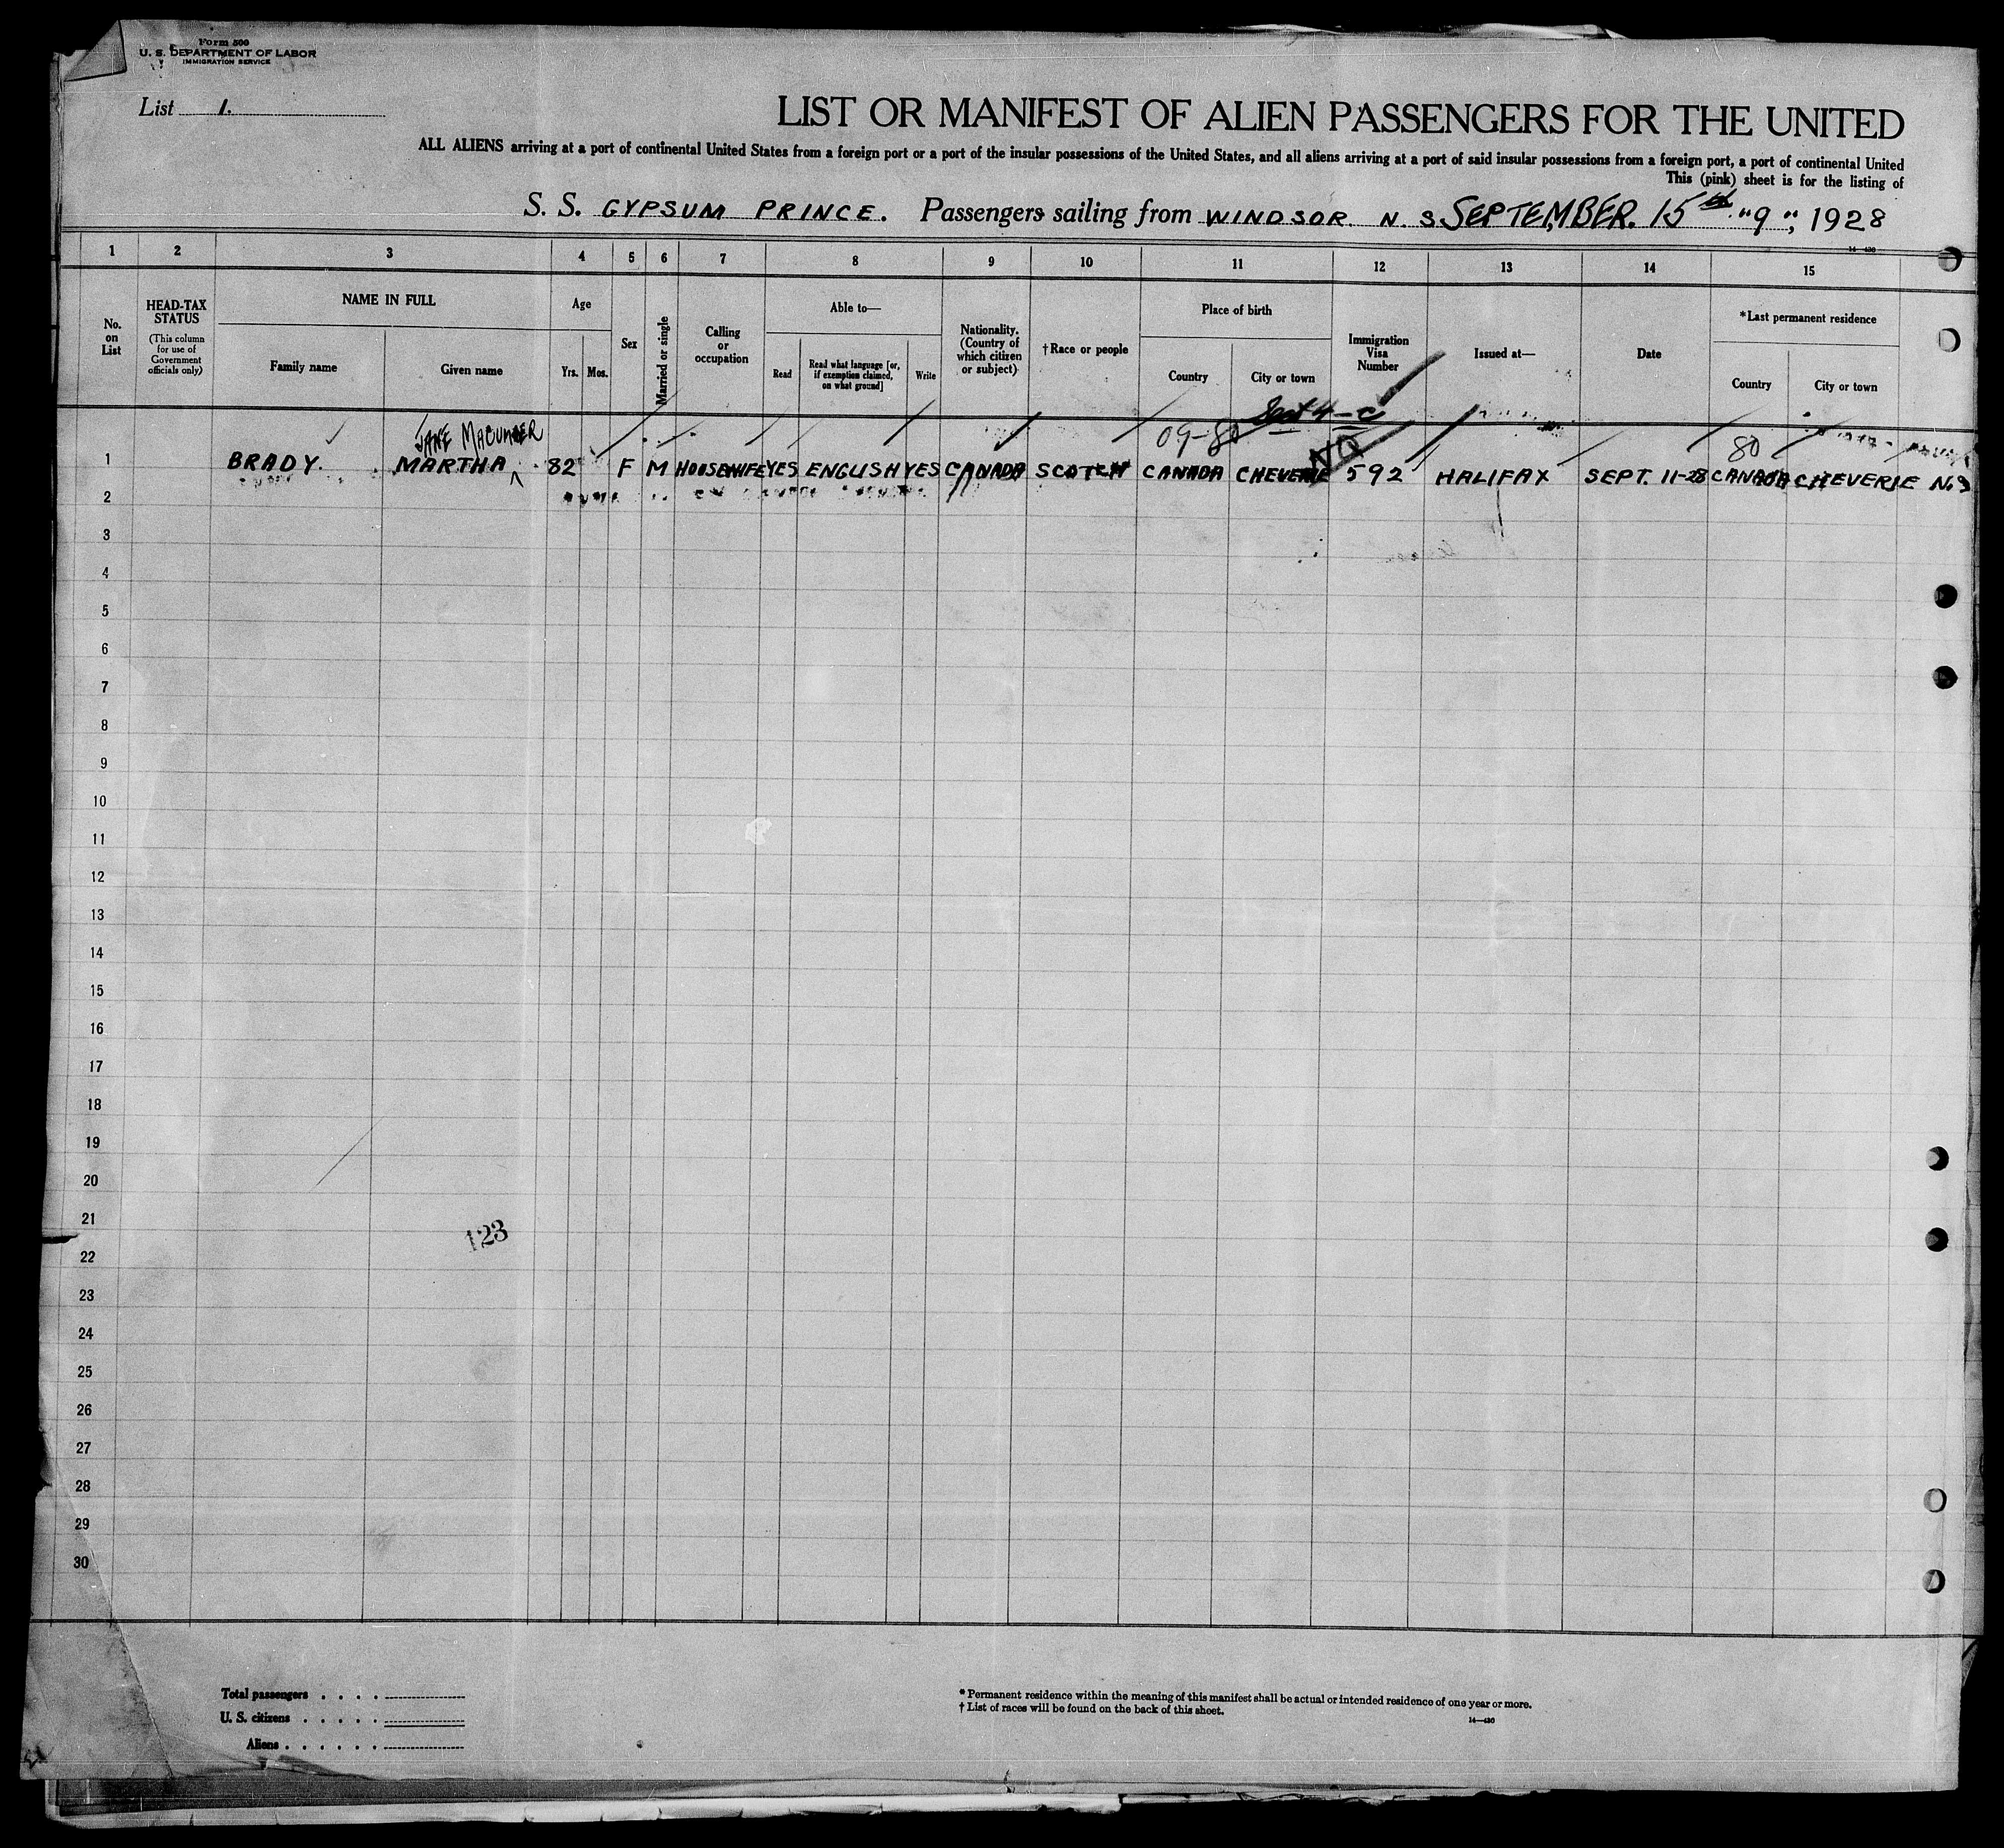 Form 500
U. S. DEPARTMENT OF LABOR
IMMIGRATION SERVICE
List 1.
LIST OR MANIFEST OF ALIEN PASSENGERS FOR THE UNITED
ALL ALIENS arriving at a port of continental United States from a foreign port or a port of the insular possessions of the United States, and all aliens arriving at a port of said insular possessions from a foreign port, a port of continental United
This (pink) sheet is for the listing of
S. S. GYPSUM PRINCE. Passengers sailing from WINDSOR N. S. SEPTEMBER. 15th "9", 1928
14—430
1 2 3 4 5 6 7 8 9 10 11 12 13 14 15
No. on List
HEAD-TAX STATUS
(This column for use of Government officials only)
NAME IN FULL
Family name
Given name
Age
Yrs. Mos.
Sex
Married or single
Calling or occupation
Able to—
Read
Read what language [or, if exemption claimed, on what ground]
Write
Nationality. (Country of which citizen or subject)
†Race or people
Place of birth
Country
City or town
Immigration Visa Number
Issued at—
Date
*Last permanent residence
Country
City or town
Sect 4-c
JANE 09-80 NQ 80
1 BRADY. MARTHA 82 F M HOUSEWIFE YES ENGLISH YES CANADA SCOTCH CANADA CHEVERIE 592 HALIFAX SEPT. 11-28 CANADA CHEVERIE N.S
2
3
4
5
6
7
8
9
10
11
12
13
14
15
16
17
18
19
20
21
123
22
23
24
25
26
27
28
29
30
Total passengers . . . .
U. S. citizens . . . . .
Aliens . . . . . .
* Permanent residence within the meaning of this manifest shall be actual or intended residence of one year or more.
† List of races will be found on the back of this sheet.
14—430